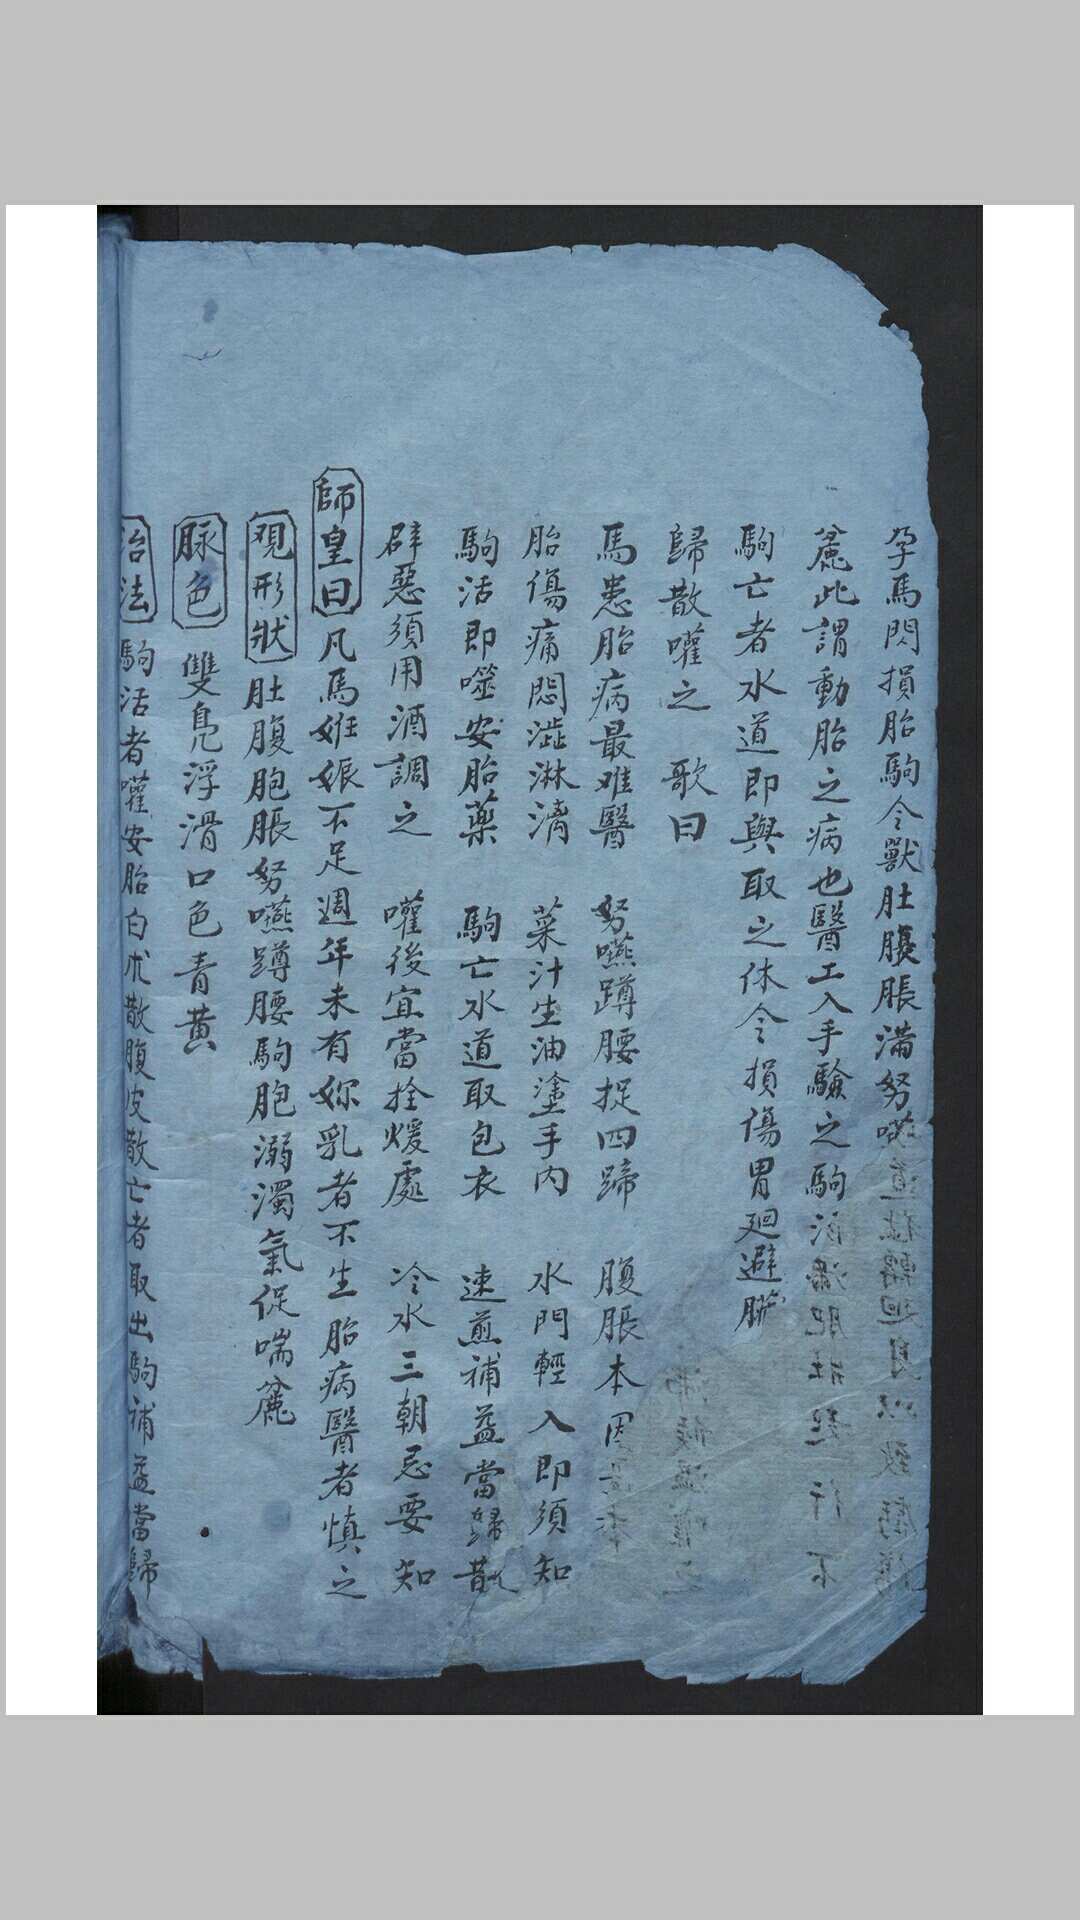 孕馬閃損胎駒令獸肚腹脹滿努
麄此謂動胎之病也醫工入手驗之駒
駒亡者水道即與取之休令損傷胃廻避臍
歸散嚾之 歌曰
馬患胎病最难醫 努嚥蹲腰捉四蹄 腹脹本因
胎傷痛悶澁淋漓 菜汁生油塗手内 水門輕入即須知
駒活即噬安胎藥 駒亡水道取包衣 速煎補益當歸散
辟惡須用酒調之 嚾後宜當拴煖處 冷水三朝忌要知
師皇曰凡馬姙娠不足週年未有妳乳者不生胎病醫者慎之
观形狀肚腹胞脹努嚥蹲腰駒胞溺濁氣促喘麄
脉色 雙鳧浮滑口色青黄
治法駒活者嚾安胎白朮散腹皮散亡者取出駒補益當歸